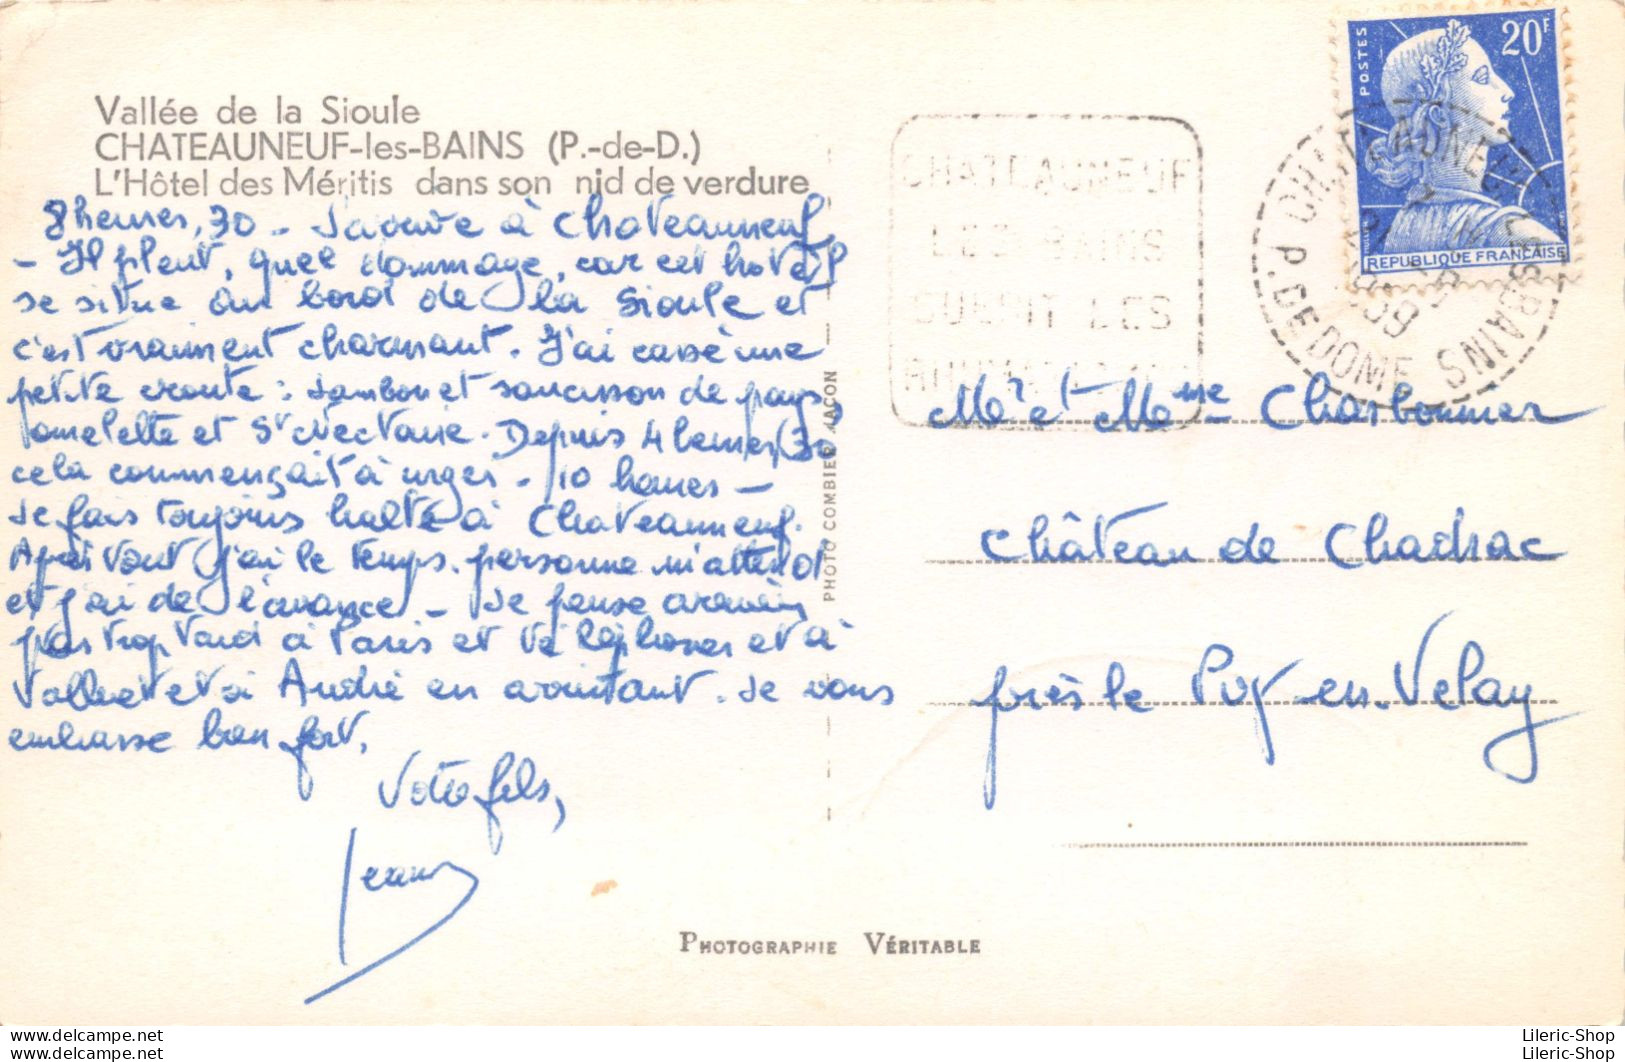 Vallée de la Sioule
CHATEAUNEUF-les-BAINS (P.-de-D.)
L'Hôtel des Méritis dans son nid de verdure
8 heures, 30 - J'arrive à Chateauneuf
- Il pleut, quel dommage, car cet hotel
se situe au bord de la Sioule et
c'est vraiment charmant. J'ai cassé une
petite croute : Jambon et saucisson de pays,
omelette et St Nectaire. Depuis 4 heures, 30
cela commençait à urger. - 10 heures -
Je fais toujours halte à Chateauneuf.
Après tout j'ai le temps. personne m'attend
et j'ai de l'avance - Je pense arriver
pas trop tard à Paris et téléphoner et à
et à André en arrivant. Je vous
embrasse bien fort,
Votre fils,
Jean
PHOTO COMBIER MACON
PHOTOGRAPHIE VÉRITABLE
CHATEAUNEUF
LES BAINS
GUERIT LES
POSTES
20F
REPUBLIQUE FRANÇAISE
CHATEAUNEUF LES BAINS
P. DE DOME
Mr et Mme Charbonnier
Château de Chadrac
près le Puy-en-Velay
Lileric-Shop
Lileric-Shop
Lileric-Shop
Lileric-Shop